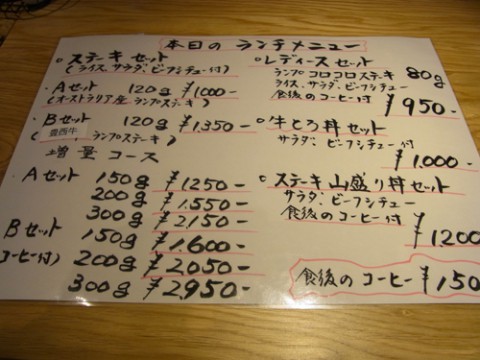 本日の ランチメニュー
・ステーキセット
(ライス、サラダ、ビーフシチュー付)
・Aセット 120g ¥1000-
(オーストラリア産 ランプステーキ)
・Bセット 120g ¥1,350-
(豊西牛 ランプステーキ)
増量コース
Aセット 150g ¥1250-
200g ¥1.550-
300g ¥2150-
Bセット 150g ¥1.600-
コーヒー付) 200g ¥2,050-
300g ¥2,950-
・レディースセット
ランプコロコロステーキ 80g
ライス、サラダ、ビーフシチュー
食後のコーヒー付 ¥950-
・牛とろ丼セット
サラダ、ビーフシチュー付
¥1.000-
・ステーキ山盛り丼セット
サラダ、ビーフシチュー
食後のコーヒー付 ¥1200
食後の コーヒー ¥150